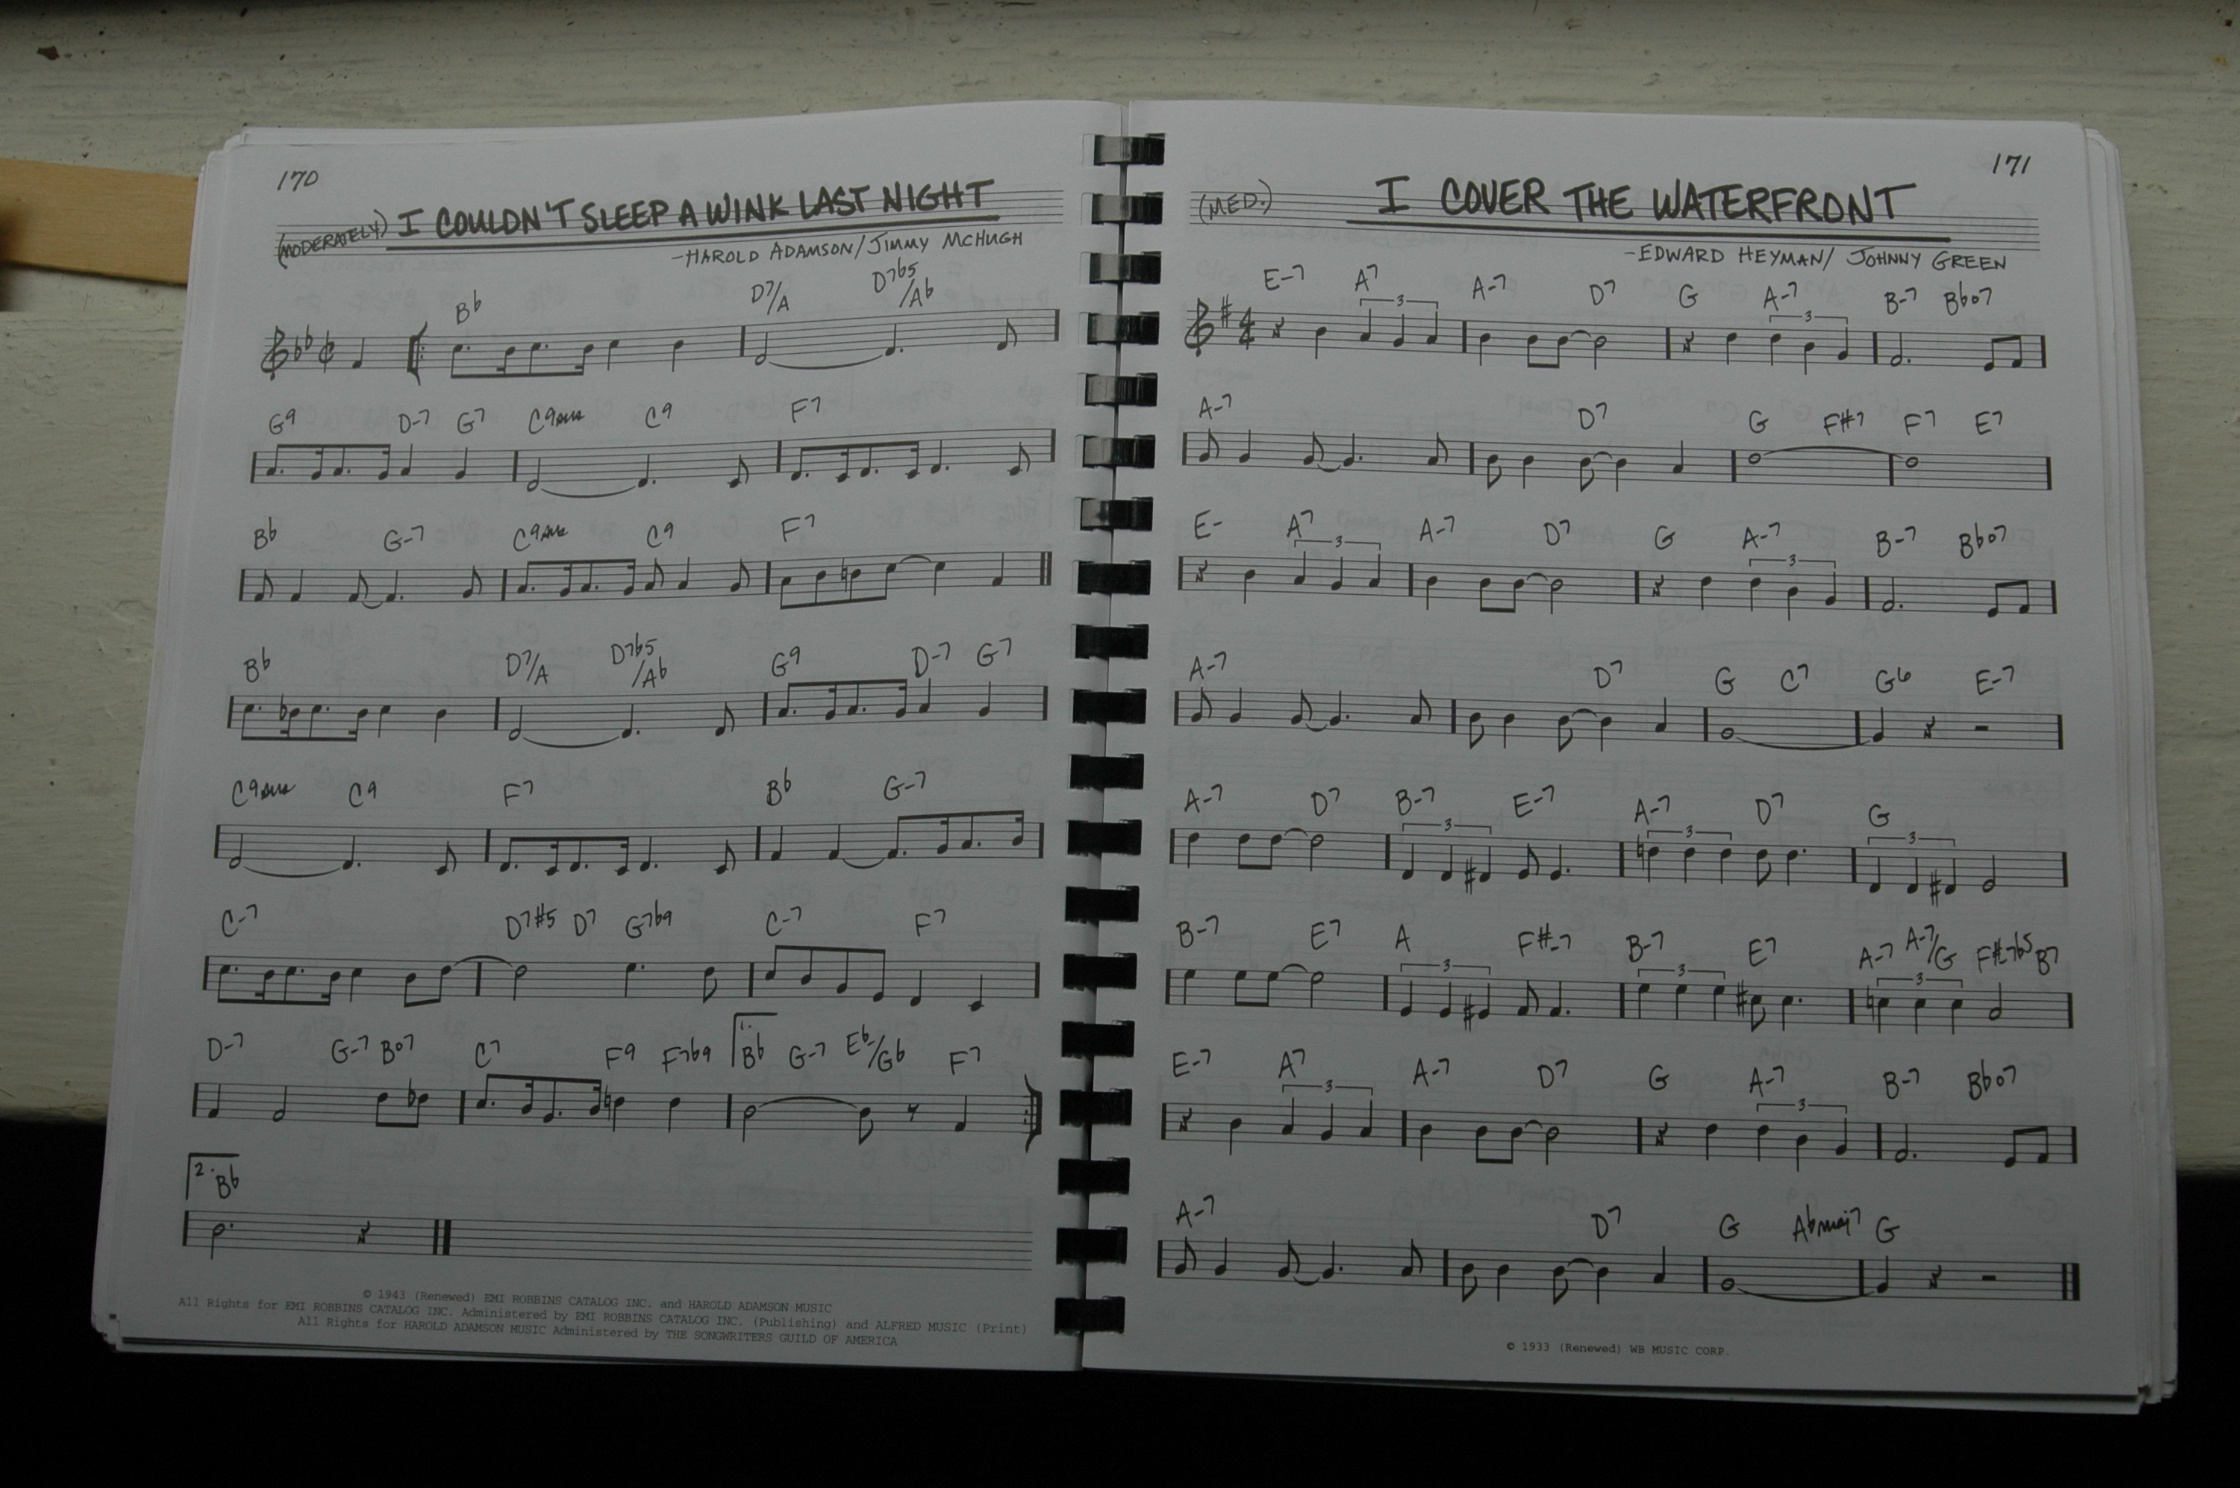 170
(MODERATELY) I COULDN'T SLEEP A WINK LAST NIGHT
-HAROLD ADAMSON/JIMMY MCHUGH
Bb D7/A D7b5/Ab
G9 D-7 G7 C9sus C9 F7
Bb G-7 C9sus C9 F7
Bb D7/A D7b5/Ab G9 D-7 G7
C9sus C9 F7 Bb G-7
C-7 D7#5 D7 G7b9 C-7 F7
D-7 G-7 Bo7 C7 F9 F7b9 1. Bb G-7 Eb-/Gb F7
2. Bb
© 1943 (Renewed) EMI ROBBINS CATALOG INC. and HAROLD ADAMSON MUSIC
All Rights for EMI ROBBINS CATALOG INC. Administered by EMI ROBBINS CATALOG INC. (Publishing) and ALFRED MUSIC (Print)
All Rights for HAROLD ADAMSON MUSIC Administered by THE SONGWRITERS GUILD OF AMERICA
171
(MED.) I COVER THE WATERFRONT
-EDWARD HEYMAN/ JOHNNY GREEN
E-7 A7 A-7 D7 G A-7 B-7 Bbo7
4
4
3 3
A-7 D7 G F#7 F7 E7
E- A7 A-7 D7 G A-7 B-7 Bbo7
3 3
A-7 D7 G C7 G6 E-7
A-7 D7 B-7 E-7 A-7 D7 G
3 3 3
B-7 E7 A F#-7 B-7 E7 A-7 A-7/G F#-7b5 B7
3 3 3
E-7 A7 A-7 D7 G A-7 B-7 Bbo7
3 3
A-7 D7 G Abmaj7 G
© 1933 (Renewed) WB MUSIC CORP.